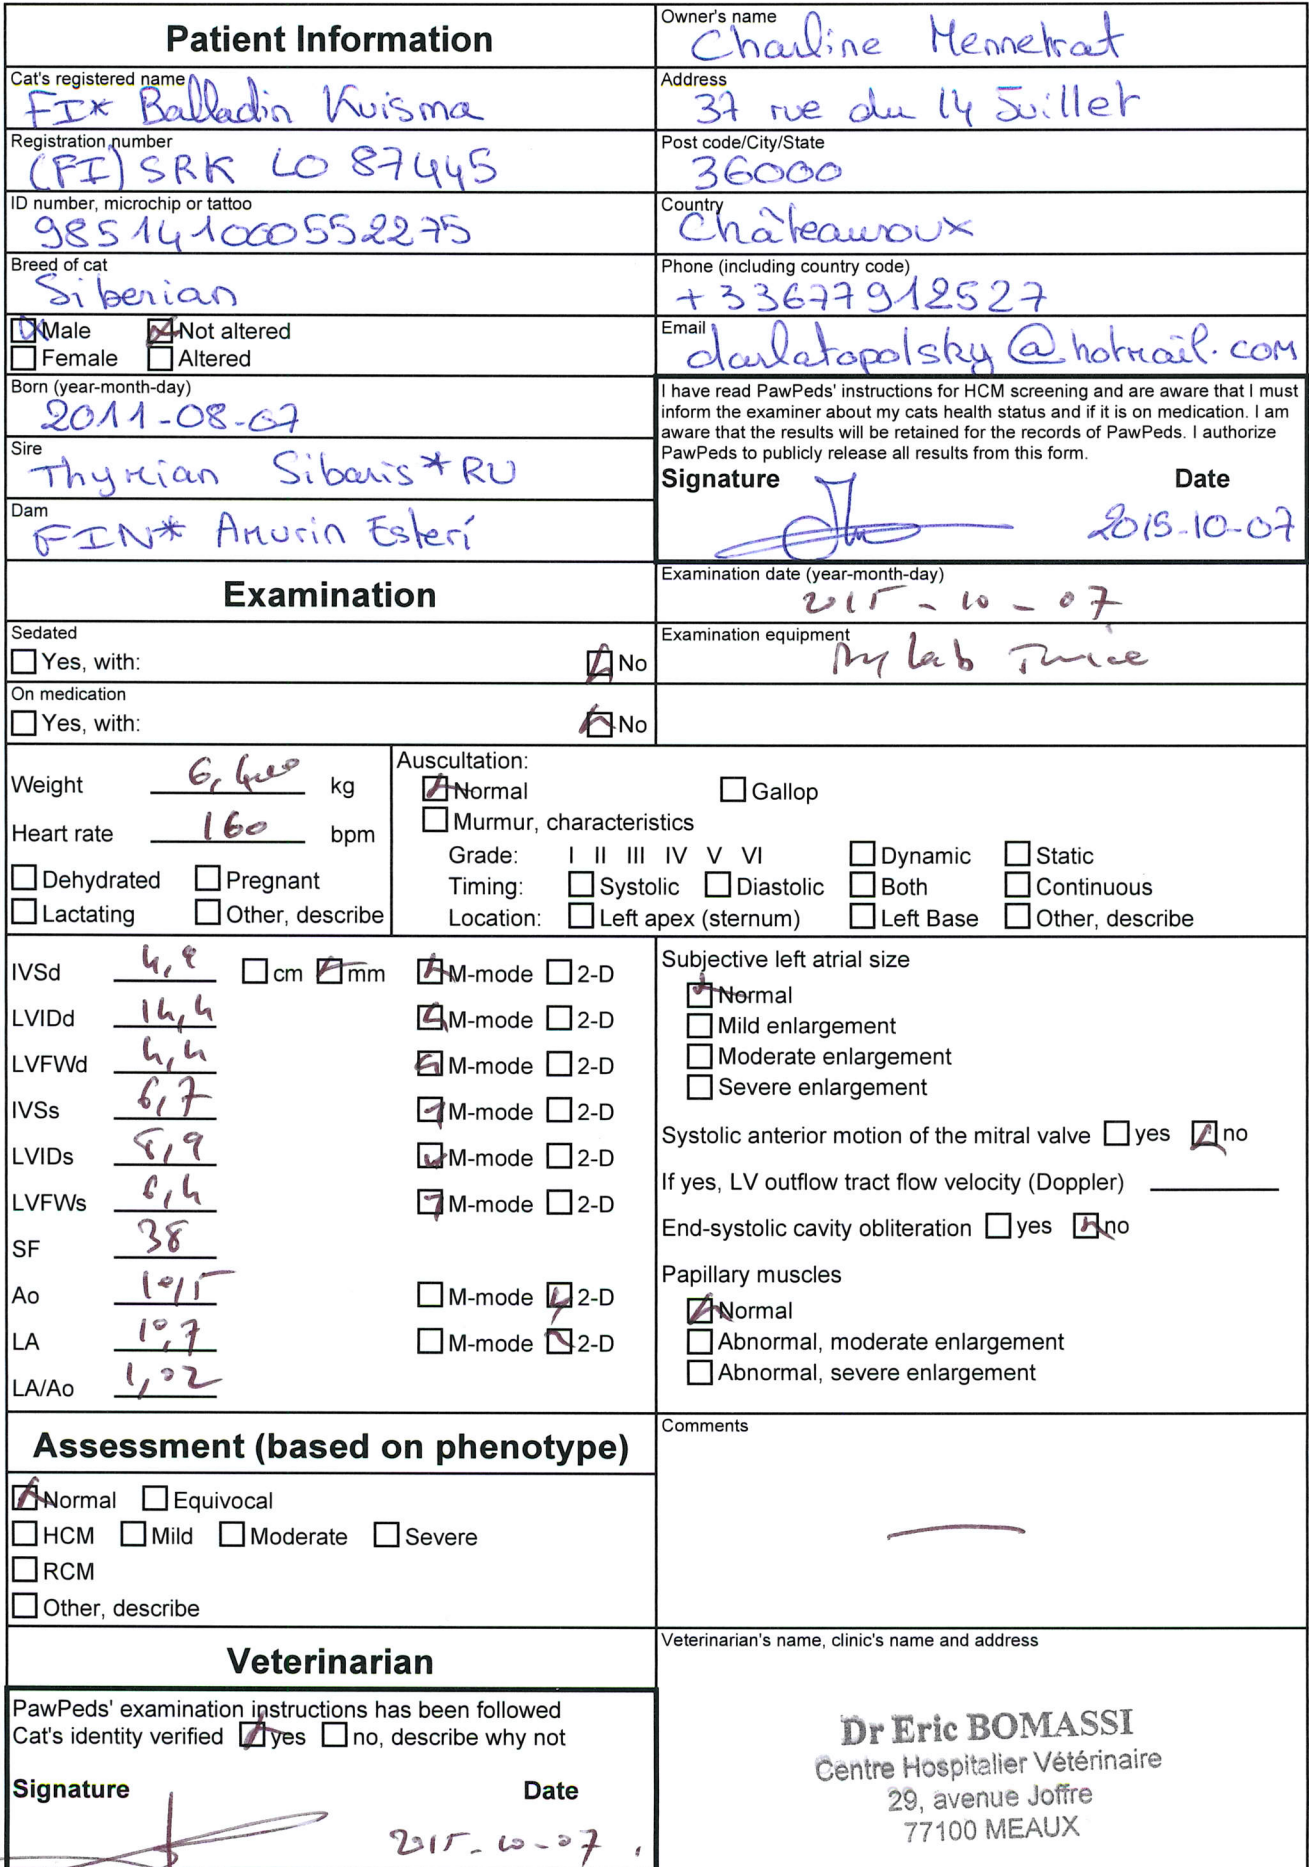 Patient Information
Owner's name
Charline Mennetrat
Cat's registered name
FI* Balladin Kuisma
Address
37 rue du 14 Juillet
Registration number
(FI) SRK LO 87445
Post code/City/State
36000
ID number, microchip or tattoo
985141000552275
Country
Châteauroux
Breed of cat
Siberian
Phone (including country code)
+33677912527
Male Not altered
Female Altered
Email
darlatopolsky@hotmail.com
Born (year-month-day)
2011-08-07
I have read PawPeds' instructions for HCM screening and are aware that I must
inform the examiner about my cats health status and if it is on medication. I am
aware that the results will be retained for the records of PawPeds. I authorize
PawPeds to publicly release all results from this form.
Sire
Thymian Sibaris*RU
Signature Date
2015-10-07
Dam
FIN* Amurin Esteri
Examination
Examination date (year-month-day)
2015-10-07
Sedated
Yes, with: No
Examination equipment
My Lab Twice
On medication
Yes, with: No
Weight 6,400 kg
Heart rate 160 bpm
Dehydrated Pregnant
Lactating Other, describe
Auscultation:
Normal Gallop
Murmur, characteristics
Grade: I II III IV V VI Dynamic Static
Timing: Systolic Diastolic Both Continuous
Location: Left apex (sternum) Left Base Other, describe
IVSd cm mm M-mode 2-D
LVIDd 14,4 M-mode 2-D
LVFWd 4,4 M-mode 2-D
IVSs 6,7 M-mode 2-D
LVIDs 8,9 M-mode 2-D
LVFWs 6,4 M-mode 2-D
SF 38
Ao 10,5 M-mode 2-D
LA 10,7 M-mode 2-D
LA/Ao 1,02
Subjective left atrial size
Normal
Mild enlargement
Moderate enlargement
Severe enlargement
Systolic anterior motion of the mitral valve yes no
If yes, LV outflow tract flow velocity (Doppler)
End-systolic cavity obliteration yes no
Papillary muscles
Normal
Abnormal, moderate enlargement
Abnormal, severe enlargement
Assessment (based on phenotype)
Normal Equivocal
HCM Mild Moderate Severe
RCM
Other, describe
Comments
Veterinarian
PawPeds' examination instructions has been followed
Cat's identity verified yes no, describe why not
Signature Date
2015-10-07
Veterinarian's name, clinic's name and address
Dr Eric BOMASSI
Centre Hospitalier Vétérinaire
29, avenue Joffre
77100 MEAUX